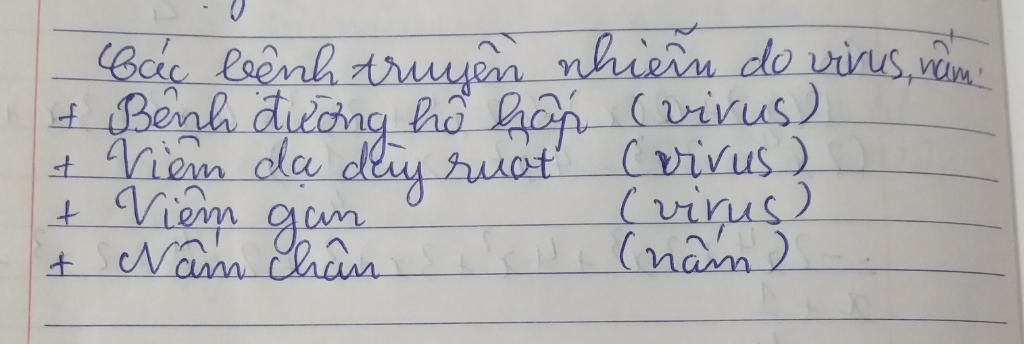 Các bệnh truyền nhiễm do virus, nấm:
+ Bệnh đường hô hấp (virus)
+ Viêm dạ dày ruột (virus)
+ Viêm gan (virus)
+ Nấm chân (nấm)